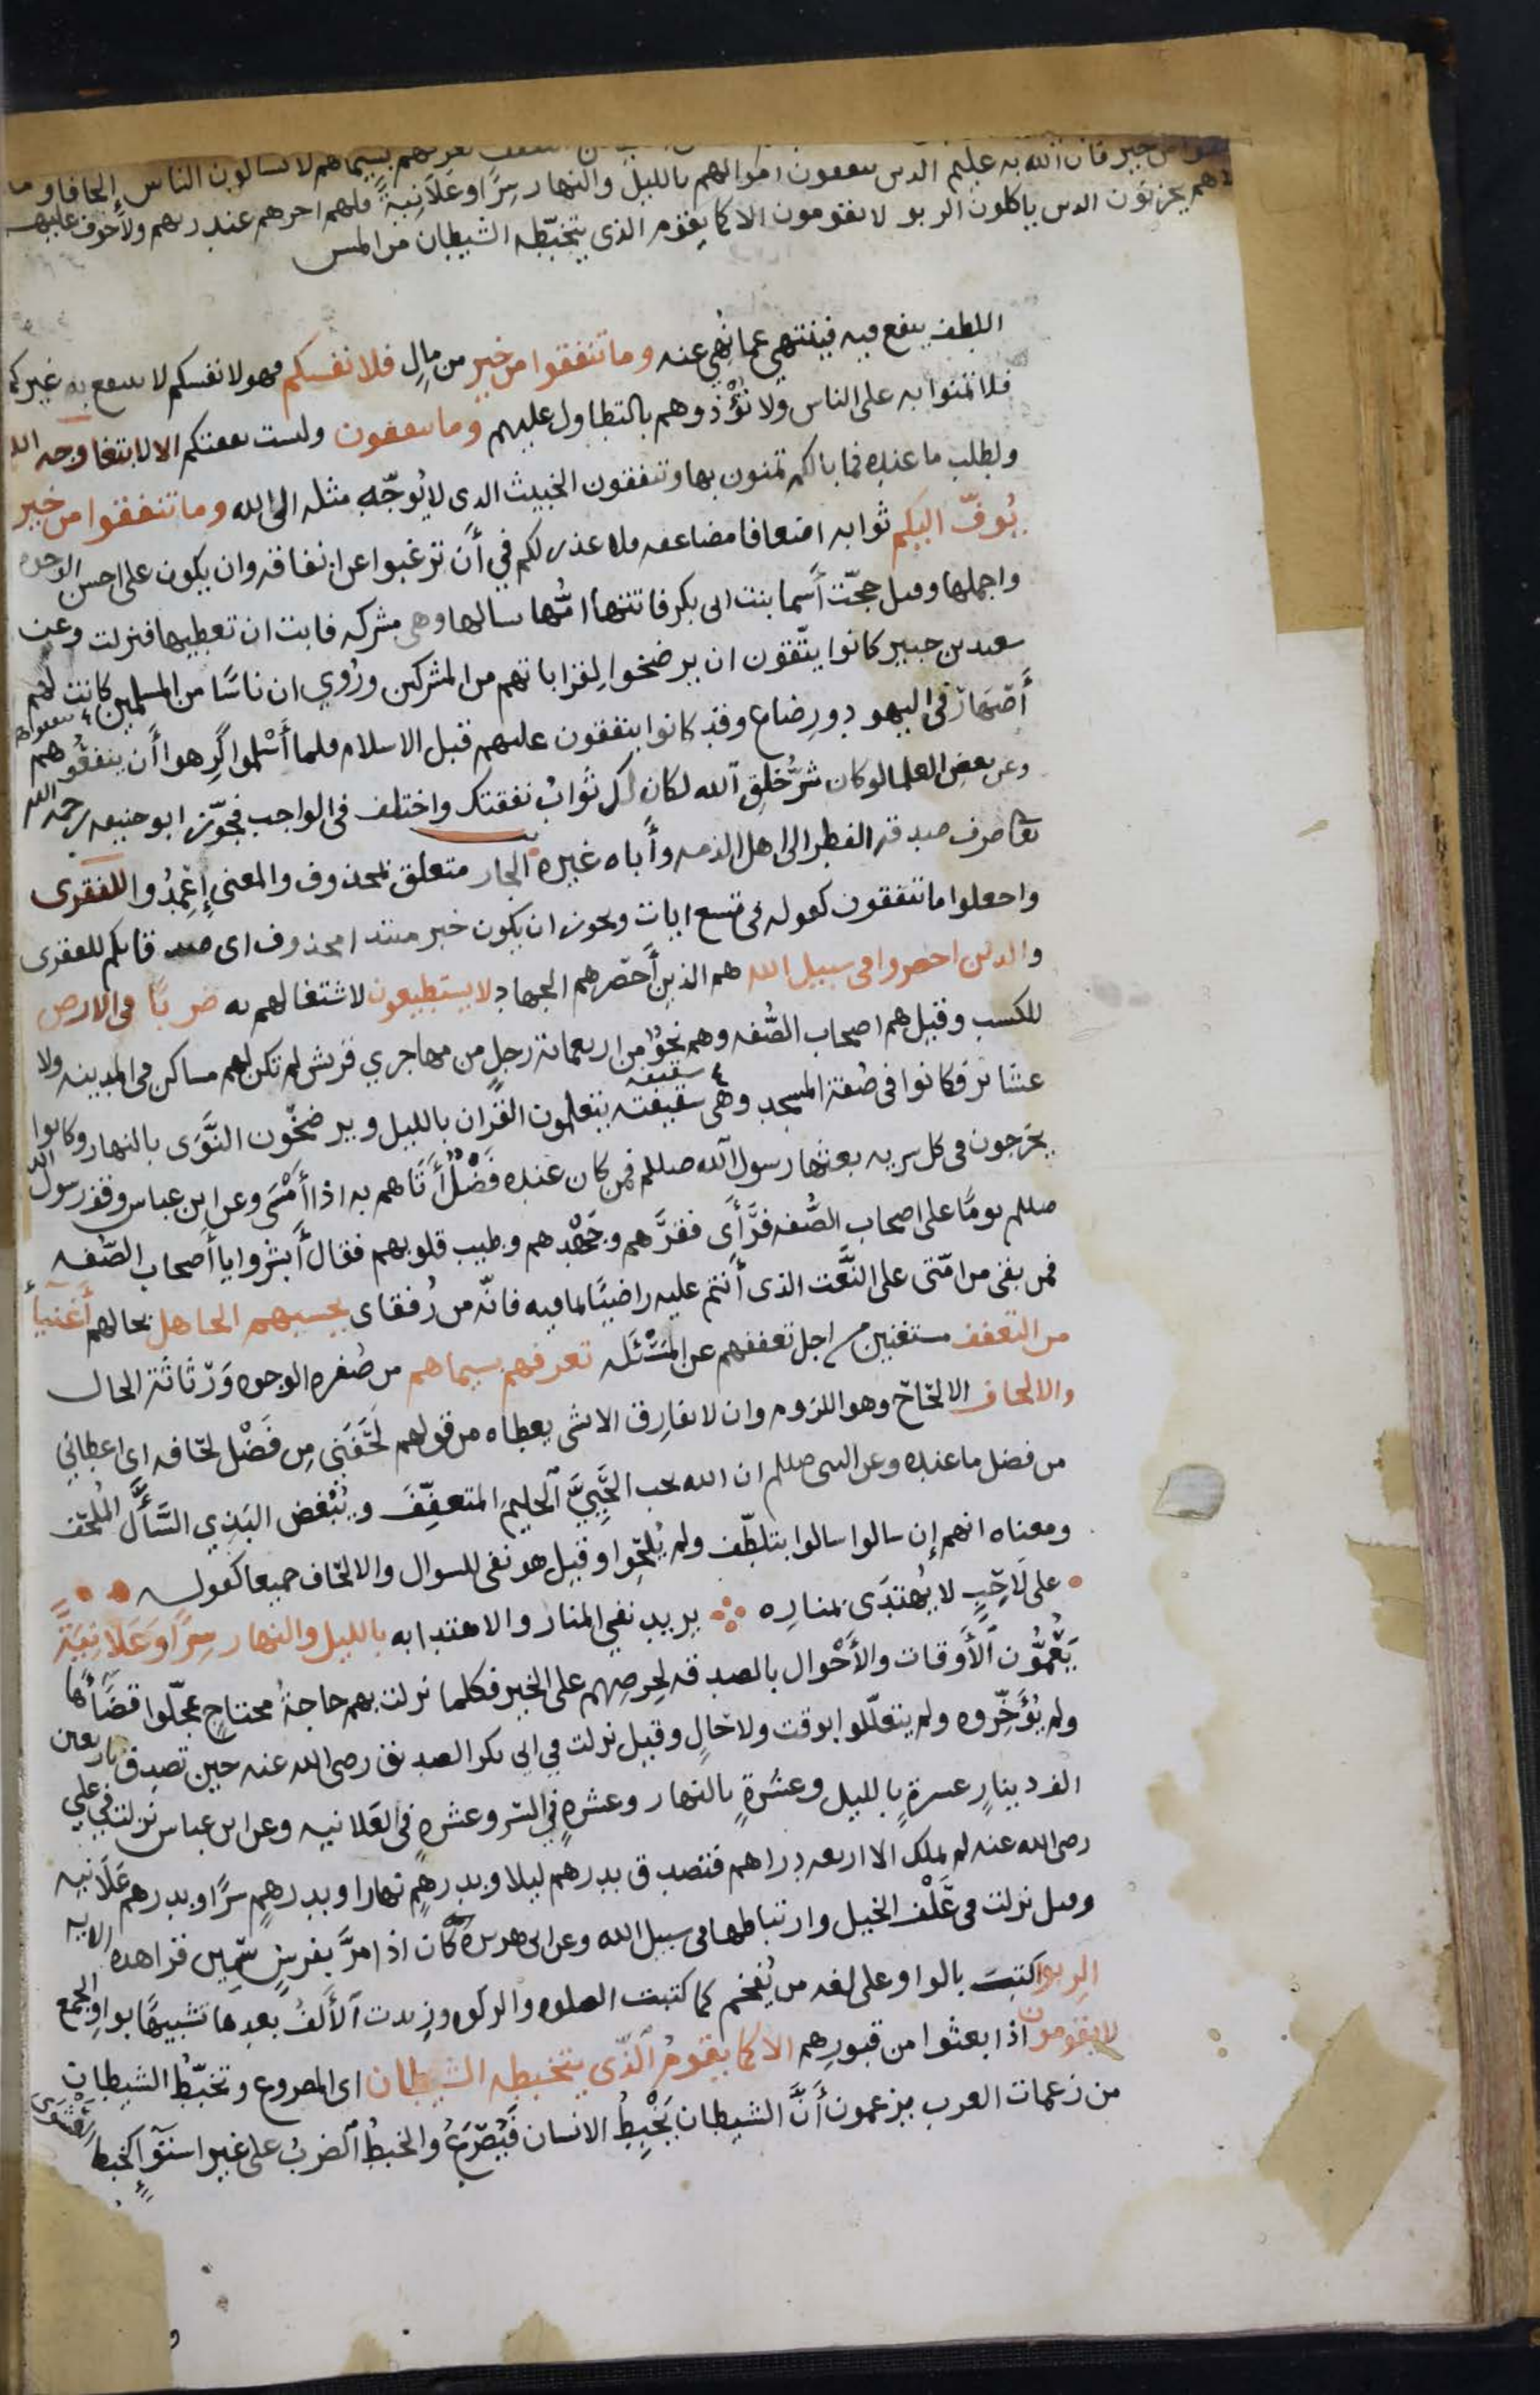 من التعفف تعرفهم بسيماهم لا يسالون الناس إلحافا وما
تنفقوا من خير فان الله به عليم الذين ينفقون اموالهم بالليل والنهار سرًا وعَلَانِيةً فلهم اجرهم عند ربهم ولا خوف عليهم
ولا هم يحزنون الذين ياكلون الربو لا يقومون الا كما يقوم الذي يتخبّطه الشيطان من المس
اللطف ينفع فيه فينتهي عما نُهي عنه وما تنفقوا من خير من مالٍ فلانفسكم فهو لانفسكم لا ينتفع به غيركم
فلا تمنوا به على الناس ولا تؤْذوهم بالتطاول عليهم وما تنفقون وليست نفقتكم الا لابتغا وجه الله
ولطلب ما عنده فما بالكم تمنون بها وتنفقون الخبيث الذي لا يُوجّه مثله الى الله وما تنفقوا من خير
يُوفّ اليكم ثوابه اضعافا مضاعفه فلا عذر لكم في أن ترغبوا عن انفاقه وان يكون على احسن الوجوه
واجملها وقيل حجّت أسما بنت ابي بكر فاتتها امُّها تسالها وهي مشركه فابت ان تعطيها فنزلت وعن
سعيد بن جبير كانوا يتّقون ان يرضخوا لقراباتهم من المشركين ورُوي ان ناسًا من المسلمين كانت لهم
أصهار في اليهود ورضاع وقد كانوا ينفقون عليهم قبل الاسلام فلما أسْلموا كرهوا أن ينفقوهم
وعن بعض العلما لو كان شرُّ خلق الله لكان لك ثوابُ نفقتك واختلف في الواجب فجوّز ابو حنيفه رحمه الله
تعا صرف صدقه الفطر الى اهل الذمه وأباه غيره الجار متعلق بمحذوف والمعنى إعْمِدُوا للفقرى
واجعلوا ما تنفقون كقوله في تسع ايات ويجوز ان يكون خبر مبتدا محذوف اي صدقاتكم للفقرى
والذين احصروا في سبيل الله هم الذين أحصرهم الجهاد لا يستطيعون لاشتغالهم به ضربًا في الارض
للكسب وقيل هم اصحاب الصُّفه وهم نحوٌ من اربعمائة رجلٍ من مهاجري قريش لم تكن لهم مساكن في المدينه ولا
عشائر فكانوا في صُفة المسجد وهي سقيفته يتعلمون القران بالليل ويرضخُون النَّوَى بالنهار وكانوا
يخرجون في كل سريه بعثها رسول الله صللم فمن كان عنده فَضْلٌ أتَاهم به اذا أمْسَى وعن ابن عباس وقف رسول الله
صللم يومًا على اصحاب الصُّفه فرَأى فقرَهم وجَهْدهم وطيب قلوبهم فقال أبشروا يا أصحاب الصّفه
فمن بقى من امّتى على النَّعت الذى أنتم عليه راضيًا بما فيه فانّه من رُفقاى يحسبهم الجاهل بحالهم أغنيا
من التعفف مستغنين من اجل تعففهم عن المسْئَله تعرفهم بسيماهم من صُفره الوجوه وَرثَاثة الحال
والالحاف الالحَاح وهو اللزوم وان لا يفارق الا بشى يعطاه من قولهم لَحَفَني مِن فَضْل لحَافه اى اعطاني
من فضل ما عنده وعن النبي صللم ان الله يحب الحَيِيَّ الحليم المتعفِّفَ ويُبْغض البَذِي السَّأَّل المُلحف
ومعناه انهم إن سالوا سالوا بتلطّف ولم يُلحّوا وقيل هو نفى للسوال والالحَاف جميعا كقوله
على لَاحِبٍ لا يُهتدَى بمنارِه يريد نفي المنار والاهتدا به بالليل والنهار سِرًّا وَعَلَانِيَةً
يَعُمُّون الأَوقات والأَحْوال بالصدقه لحِرصِهم على الخير فكلما نزلت بهم حاجةُ محتاجٍ عجّلوا قضَاءَها
ولم يُؤَخِّروه ولم يتعلّلوا بوقت ولا حَالٍ وقيل نزلت في ابي بكر الصديق رضى الله عنه حين تصدق باربعين
الف دينارٍ عشرةٍ بالليل وعشَرةٍ بالنهار وعشرهٍ في السّر وعشرهٍ في العَلانيه وعن ابن عباس نزلت في علي
رضى الله عنه لم يملك الا اربعه دراهم فتصدق بدرهم ليلا وبدرهمٍ نهارا وبدرهمٍ سرًا وبدرهم عَلَانيه
وقيل نزلت في عَلْف الخيل وارتباطها في سبيل الله وعن ابي هريرة كان اذا مرَّ بفرسٍ سَمِين قرا هذه الايه
الربوا كتبت بالواو على لغه من يُفخم كما كتبت الصلوه والزكوه وزيدت الأَلفُ بعدها تشبيهًا بواو الجمع
لا يقومون اذا بعثوا من قبورِهم الا كما يقومُ الّذي يتخبطه الشيطان اى المصروع وتخبّطُ الشيطان
من زعمات العرب يزعمون أنَّ الشيطان يَخْبِطُ الانسان فَيُصْرَعُ والخبطُ الضربُ على غير استوآءٍ كخبط العَشْوى